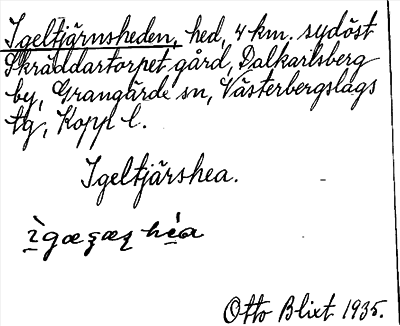 Igeltjärnsheden, hed, 4 km. sydöst
Skräddartorpet gård, Dalkarlsberg
by, Grangärde sn, Västerbergslags
tg, Kopp l.
Igeltjärshea.
Otto Blixt 1935.